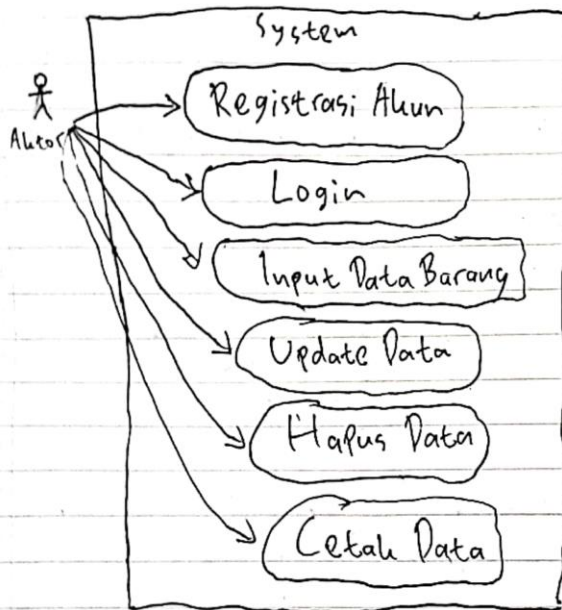 System
Aktor
Registrasi Akun
Login
Input Data Barang
Update Data
Hapus Data
Cetak Data